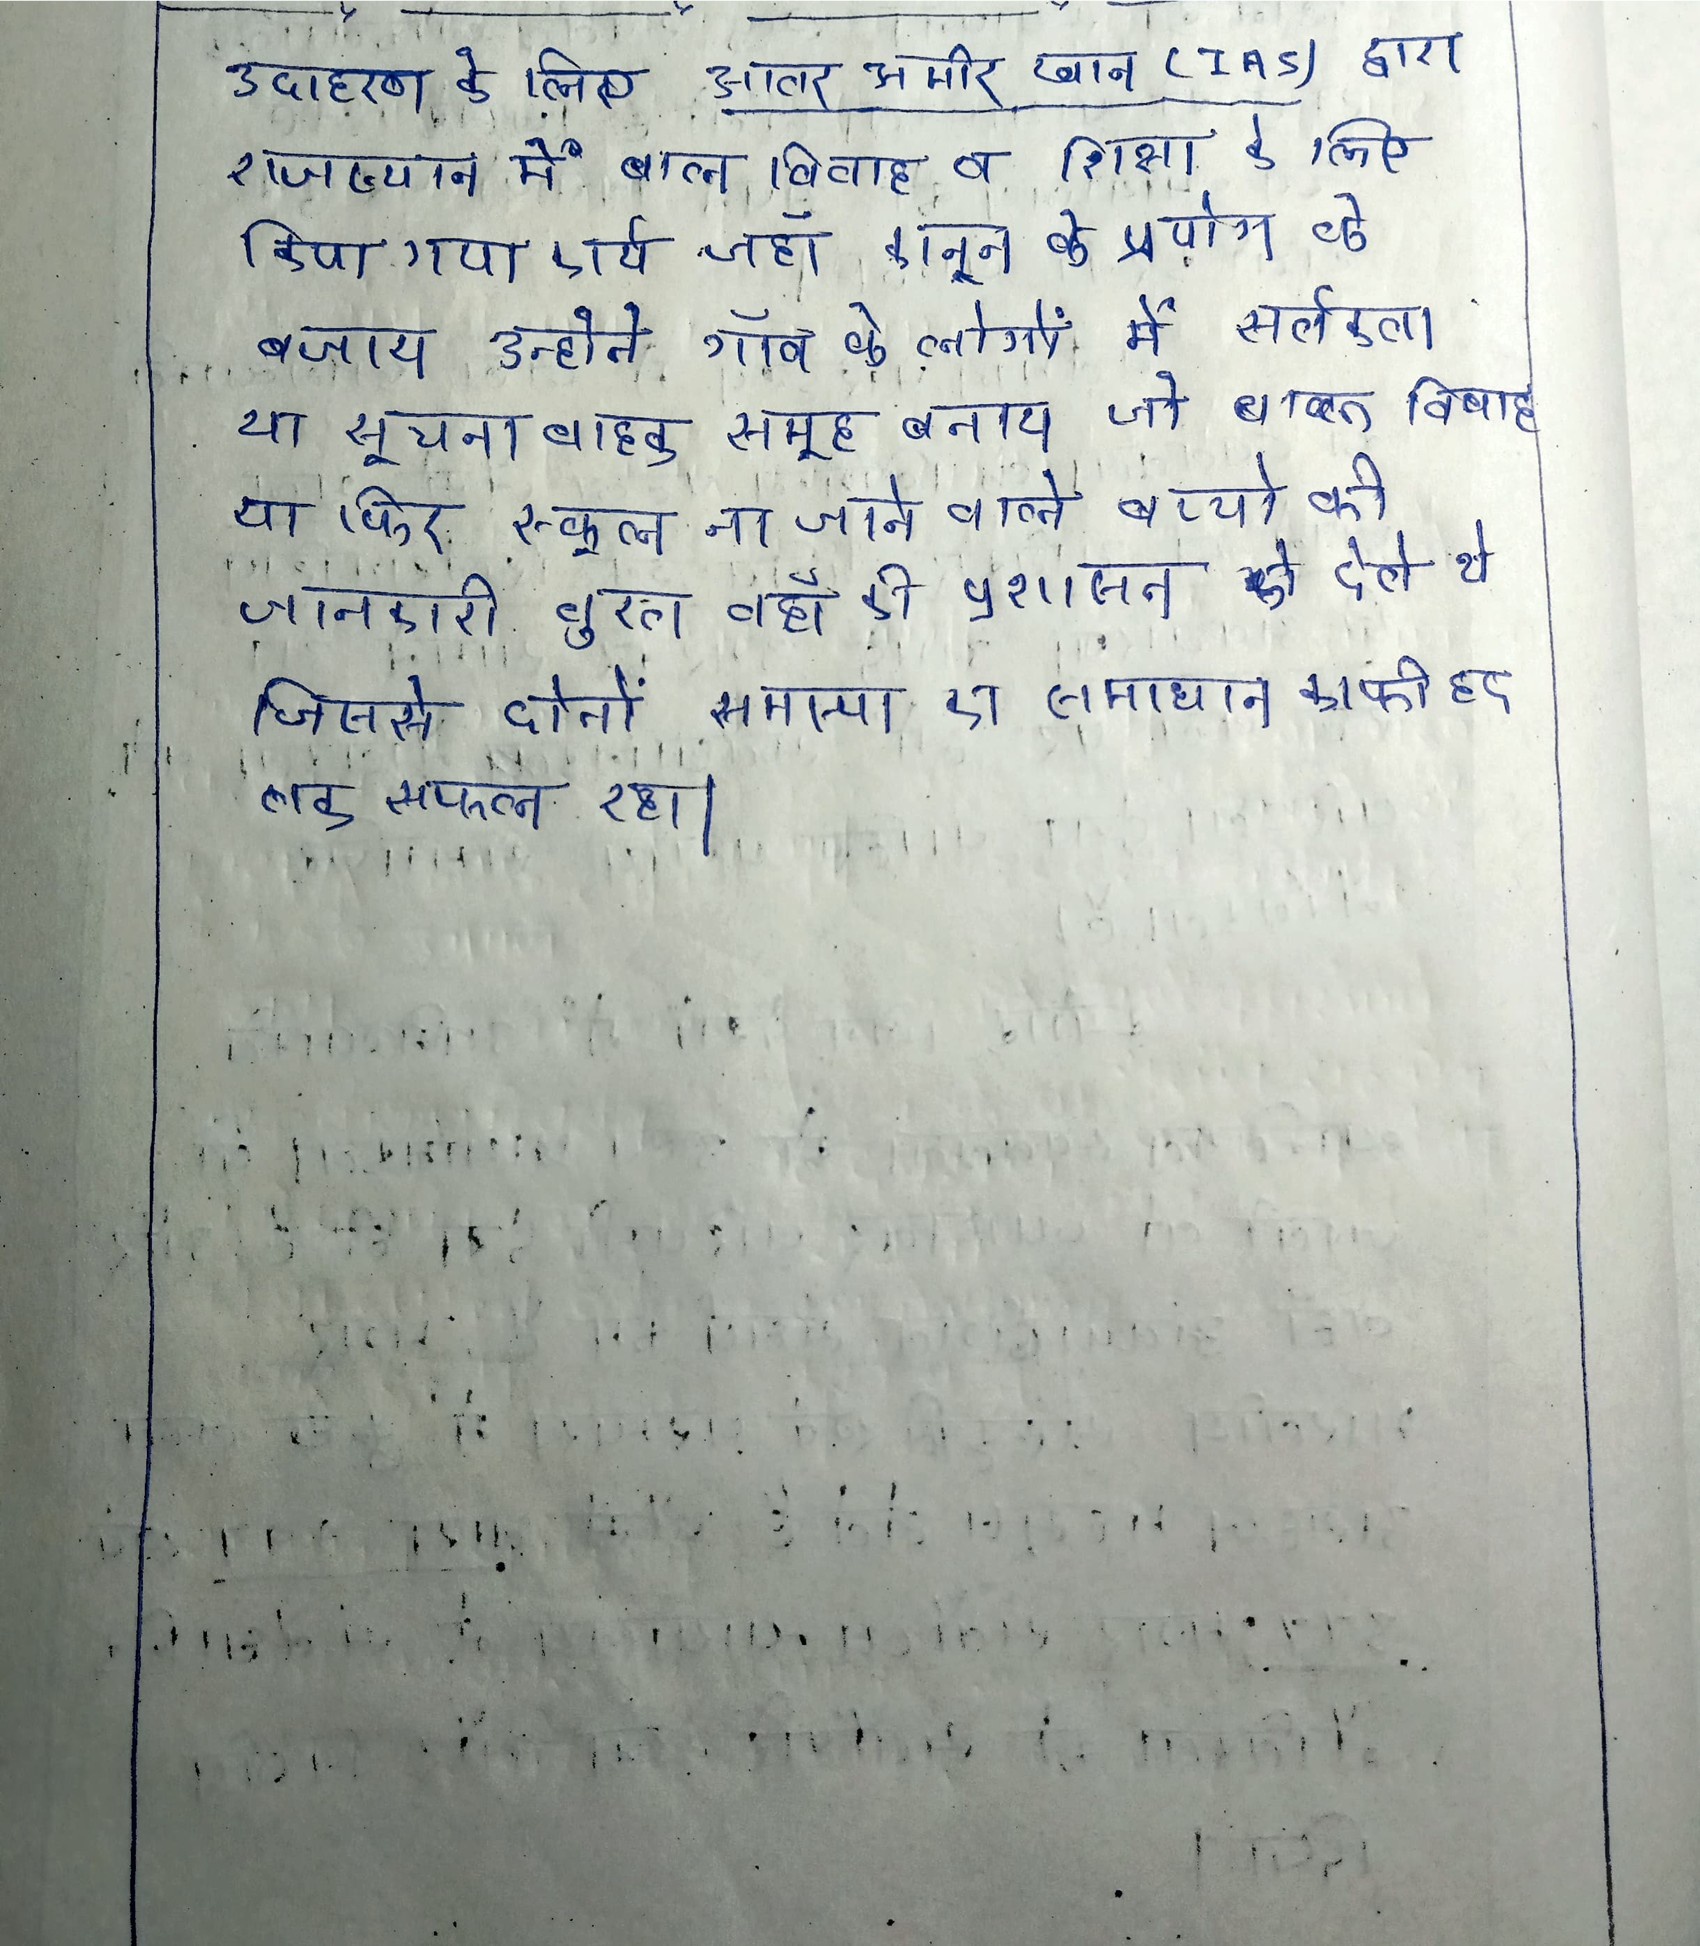 उदाहरण के लिए आतर अमीर खान (IAS) द्वारा
राजस्थान में बाल विवाह व शिक्षा के लिए
किया गया कार्य जहाँ कानून के प्रयोग के
बजाय उन्होने गाँव के लोगों में सर्तकता
या सूचना वाहक समूह बनाय जो बाल विवाह
या फिर स्कूल ना जाने वाले बच्चो की
जानकारी तुरत वहाँ की प्रशासन को देते थे
जिससे दोनों समास्या का समाधान काफी हद
तक सफल रहा।